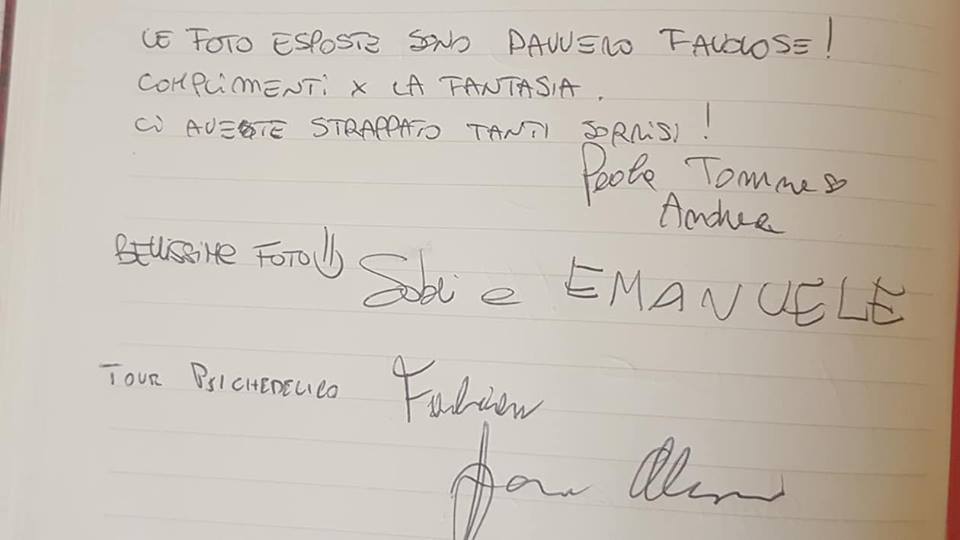 LE FOTO ESPOSTE SONO DAVVERO FAVOLOSE!
COMPLIMENTI X LA FANTASIA.
CI AVESTE STRAPPATO TANTI SORRISI!
Paola Tommaso
Andrea
BELLISSIME FOTO!! Sabi e EMANUELE
TOUR PSICHEDELICO Fabian